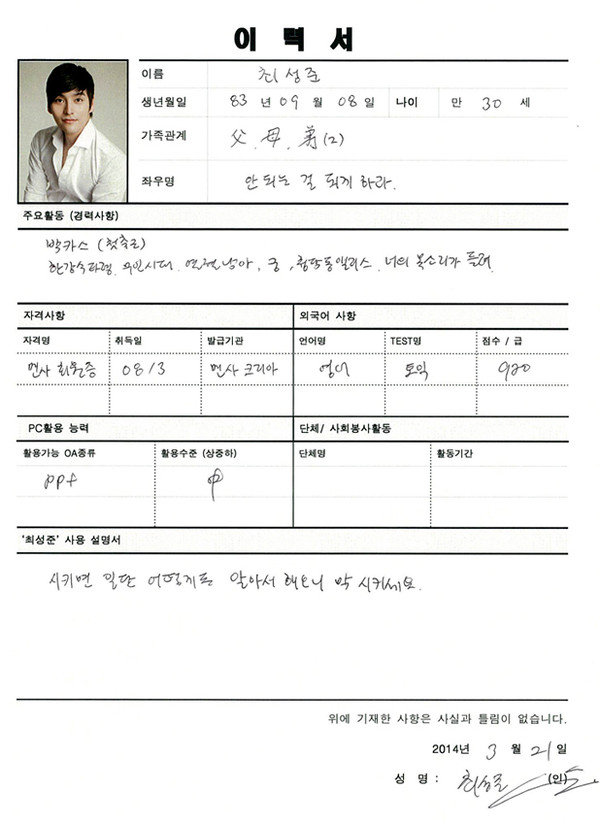 이 력 서
이름 최성준
생년월일 83 년 09 월 08 일 나이 만 30 세
가족관계 父, 母, 弟(2)
좌우명 안 되는 걸 되게 하라.
주요활동 (경력사항)
박카스 (첫촬영)
한강수타령. 무인시대. 연애남아, 궁, 청담동앨리스. 너의 목소리가 들려.
자격사항 외국어 사항
자격명 취득일 발급기관 언어명 TEST명 점수 / 급
멘사 회원증 08/3 멘사 코리아 영어 토익 920
PC활용 능력 단체/ 사회봉사활동
활용가능 OA종류 활용수준 (상중하) 단체명 활동기간
ppt 中
'최성준' 사용 설명서
시키면 일단 어떻게든 알아서 해오니 막 시키세요.
위에 기재한 사항은 사실과 틀림이 없습니다.
2014년 3 월 21 일
성 명 : 최성준 (인)